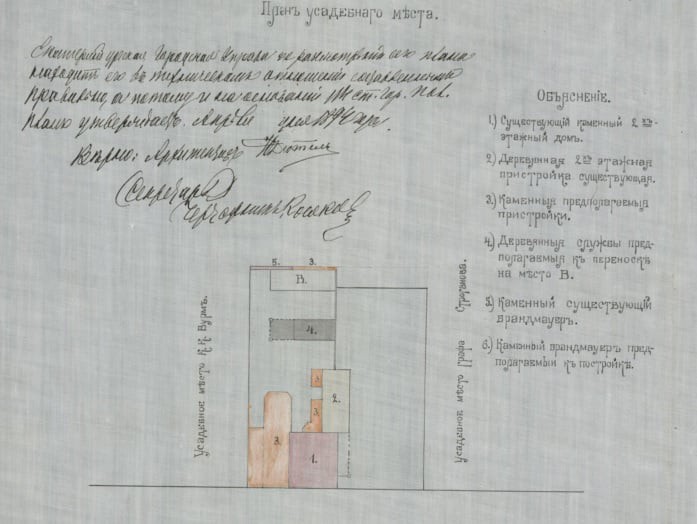 Планъ усадебнаго мѣста.
Екатеринбургская Городская Управа его плана
находитъ его въ техническомъ отношеніи
а потому и на основаніи ст. Гор. Пол.
утверждаетъ. дня 1894 г.
Архитекторъ
Секретарь
Объясненіе.
1.) Существующій каменный 2хъ-
этажный домъ.
2.) Деревянная 2хъ этажная
пристройка существующая.
3.) Каменныя предполагаемыя
пристройки.
4.) Деревянныя службы пред-
полагаемыя къ переноскѣ
на мѣсто В.
5.) Каменный существующій
брандмауеръ.
6.) Каменный брандмауеръ пред-
полагаемый къ постройкѣ.
5. 3.
В.
4.
3.
2.
3.
3.
1.
Усадебное мѣсто К.К. Вурмъ.
Усадебное мѣсто Графа Строганова.